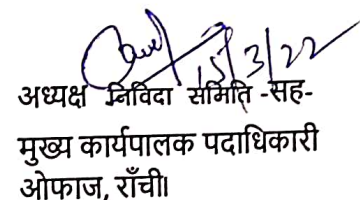 15/3/22
अध्यक्ष निविदा समिति -सह-
मुख्य कार्यपालक पदाधिकारी
ओफाज, राँची।